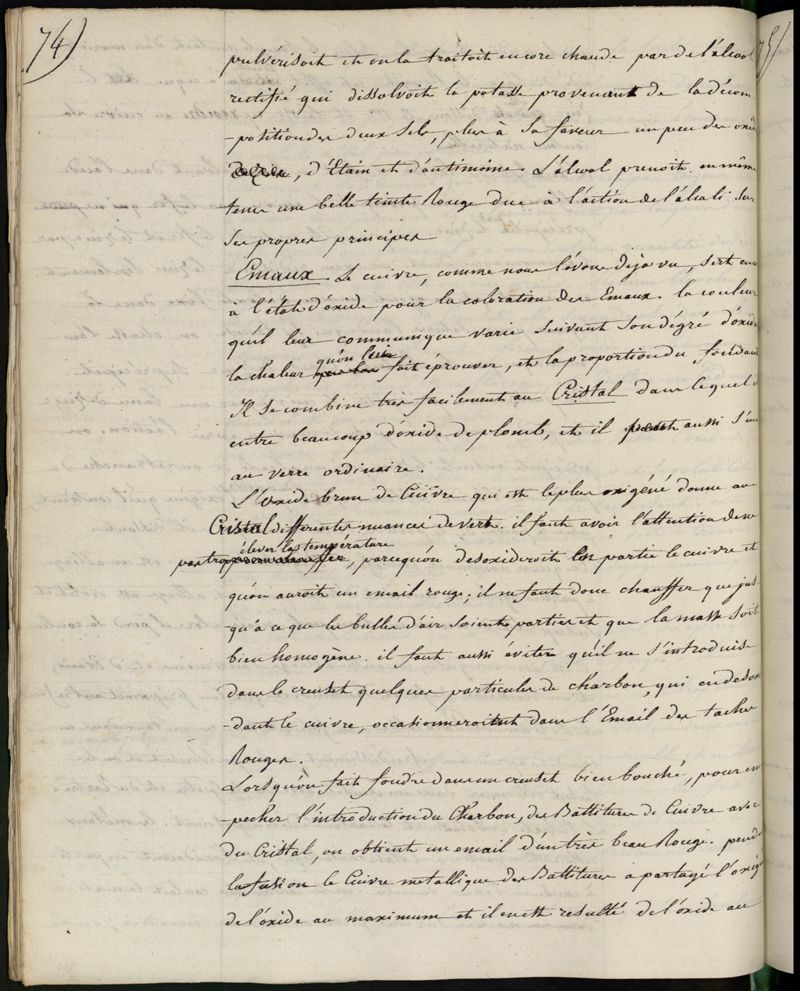 74)
75)
pulvérisoit et on la traitoit encore chaude par de l'alcool
rectifié qui dissolvoit la potasse provenant de la décom
-position des deux sels, plus à sa faveur un peu des oxid
, d'Etain et d'antimoine. L'alcool prenoit en mêm
tems une belle teinte Rouge due à l'action de l'alcali su
ses propres principes
Emaux. Le cuivre, comme nous l'avons deja vu, sert
à l'état d'oxide pour la coloration des Emaux. la couleur
qu'il leur communique varie suivant son dégré d'oxid
la chaleur qu'on leur fait éprouver, et la proportion du fondant
Il se combine très facilement au Cristal dans lequel il
entre beaucoup d'oxide de plomb, et il peut aussi s'uni
au verre ordinaire.
L'oxide brun de Cuivre qui est le plus oxigéné donne au
Cristal differentes nuances de vert. il faut avoir l'attention de ne
pas trop élever la température, parcequ'on desoxideroit en partie le cuivre et
qu'on auroit un email rouge; il ne faut donc chauffer que jus
qu'à ce que les bulles d'air soient parties et que la masse soit
bien homogène. il faut aussi éviter qu'il ne s'introduise
dans le creuset quelques particules de charbon, qui en desoxi
-dant le cuivre, occasionneroient dans l'Email des taches
Rouges.
Lorsqu'on fait fondre dans un creuset bien bouché, pour em
-pecher l'introduction du Charbon, des Battitures de Cuivre avec
du Cristal, on obtient un email d'un très beau Rouge. pend
la fusion le Cuivre metallique des Battitures a partagé l'oxig
de l'oxide au maximum et il en est resulté de l'oxide au